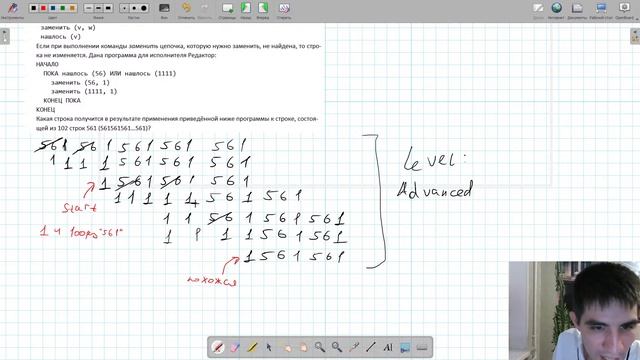 заменить (v, w)
нашлось (v)
Если при выполнении команды заменить цепочка, которую нужно заменить, не найдена, то стро-
ка не изменяется. Дана программа для исполнителя Редактор:
НАЧАЛО
ПОКА нашлось (56) ИЛИ нашлось (1111)
заменить (56, 1)
заменить (1111, 1)
КОНЕЦ ПОКА
КОНЕЦ
Какая строка получится в результате применения приведённой ниже программы к строке, состоя-
щей из 102 строк 561 (561561561...561)?
561 561 561 561 561
1 1 1 1 561 561 561
1 561 561 561
start
1 1 1 1 1 561 561
1 1 561 561 561
1 1 1 1 561 561
1 561 561
похожая
Level:
Advanced
Инструменты
Назад
Вперед
Стереть
Рабочий стол
OpenBoard